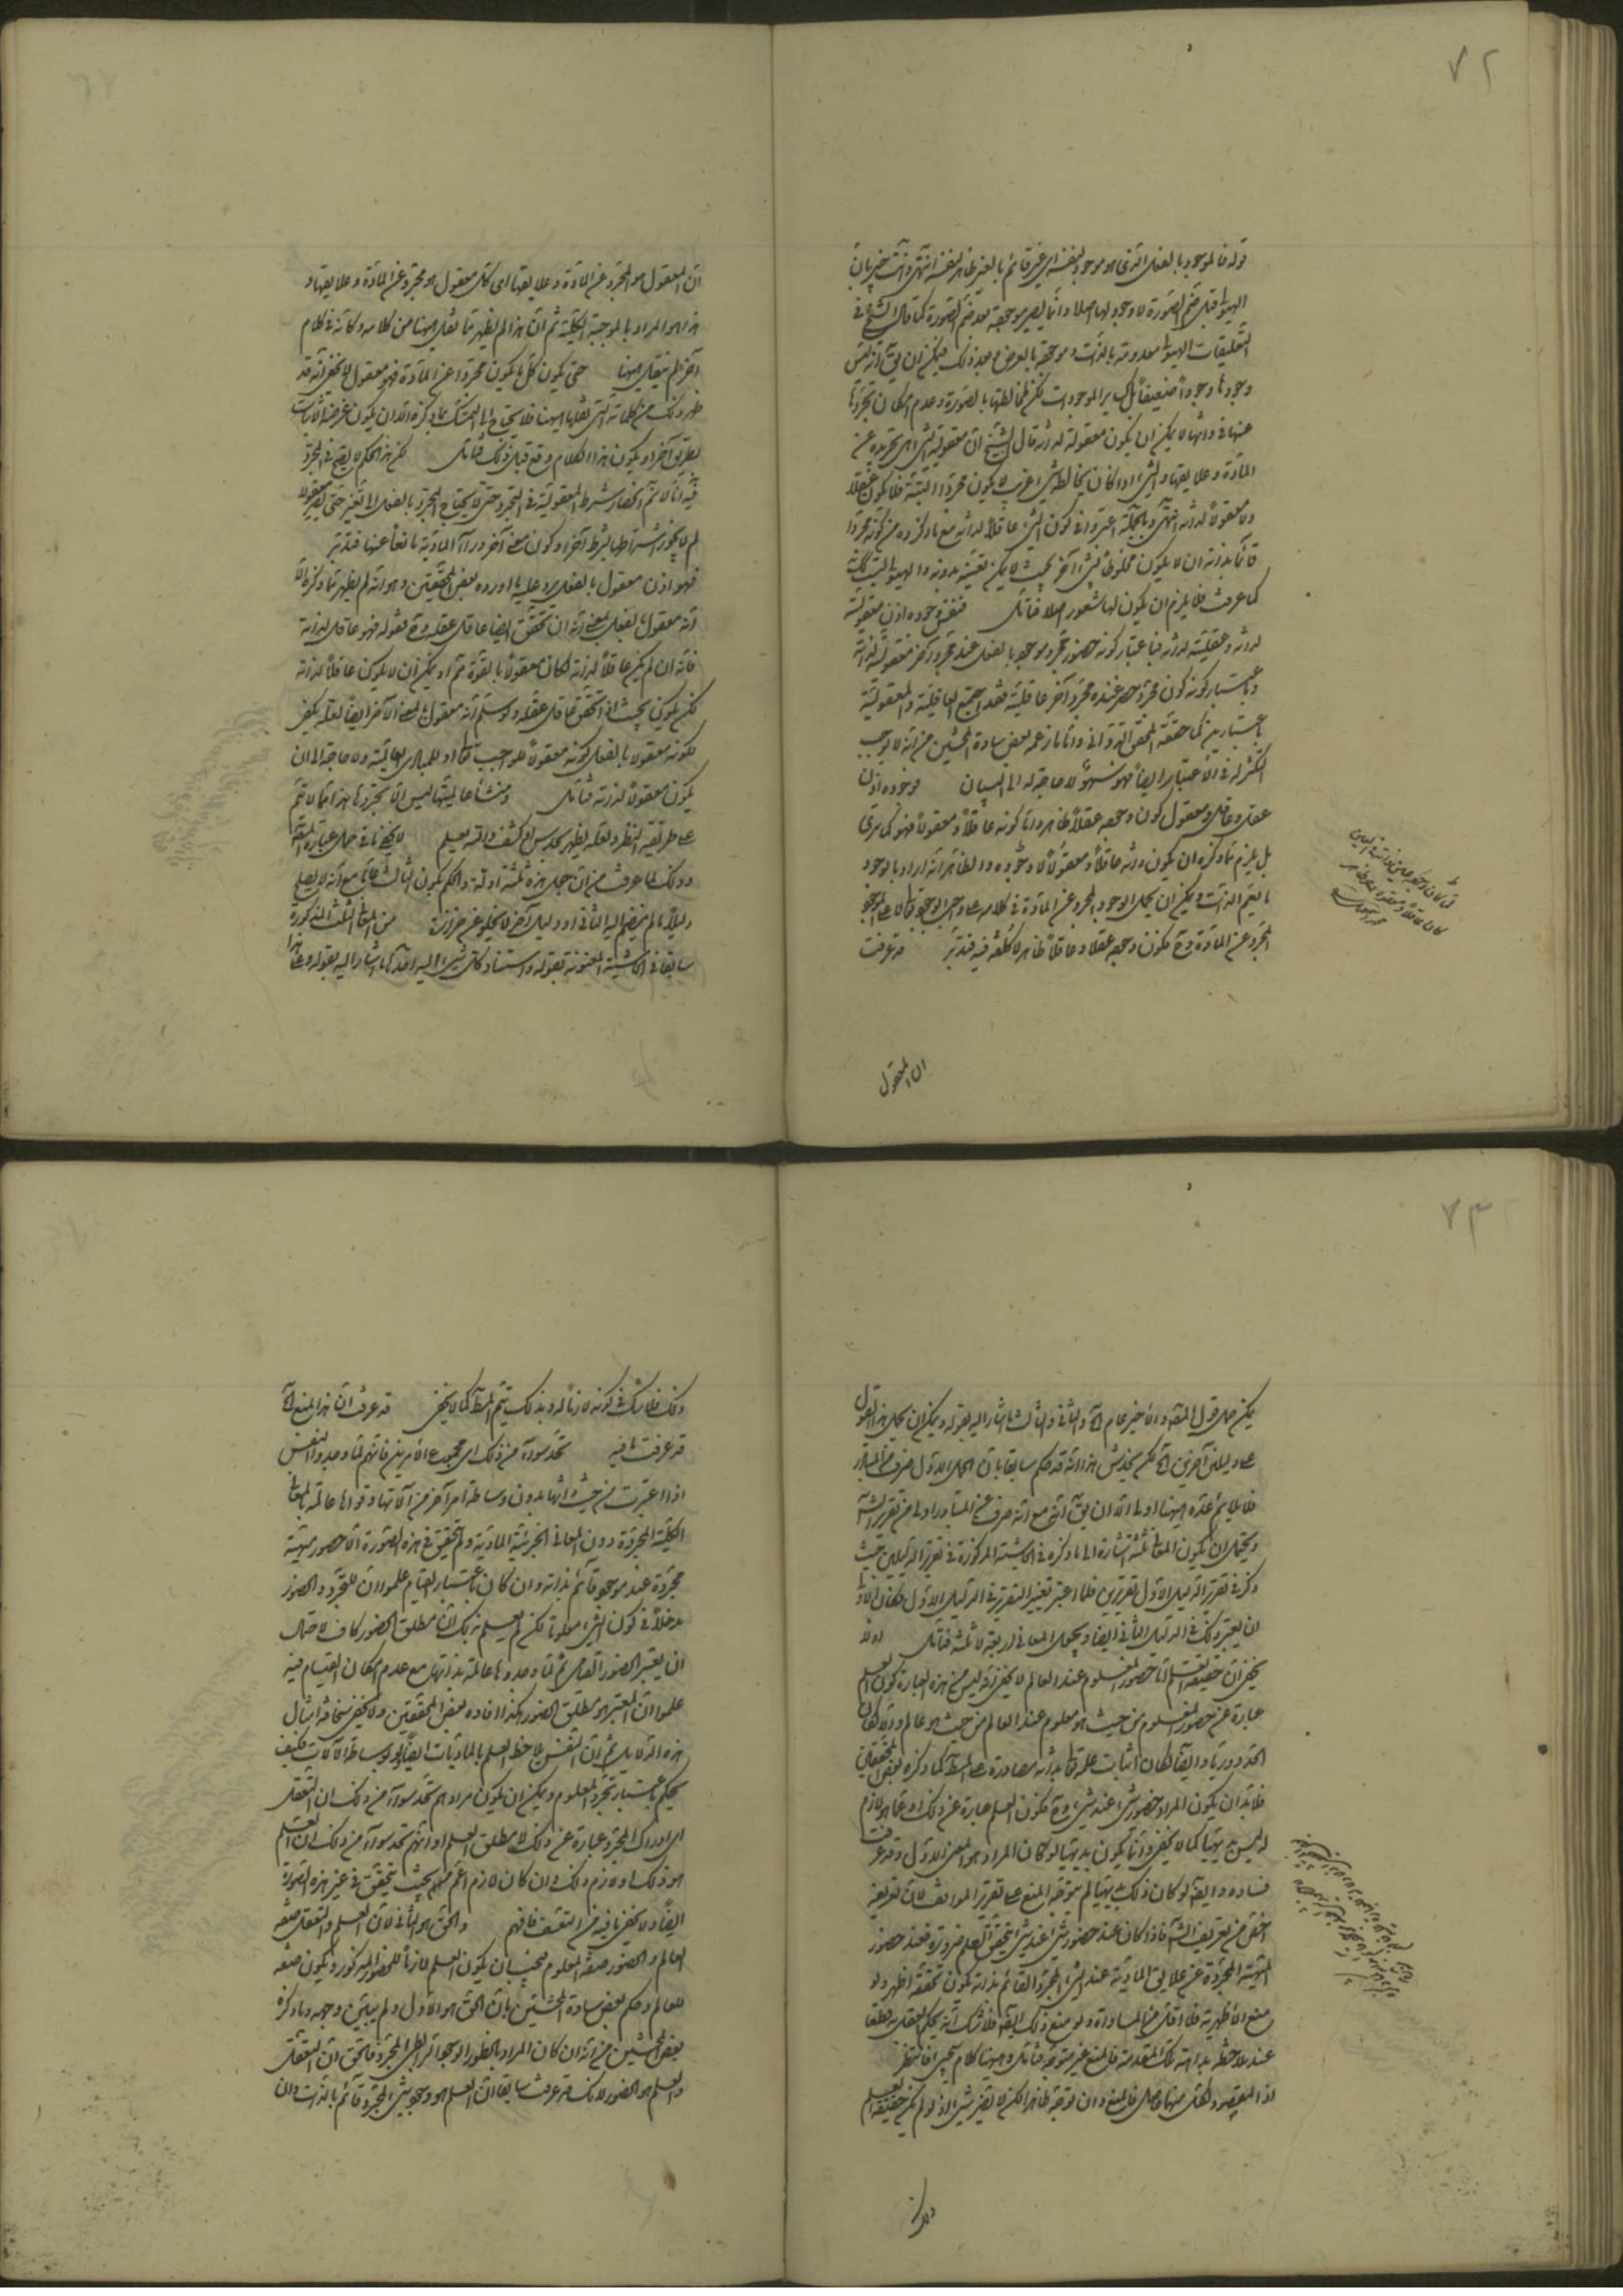 ٧٢
قوله فالموجود بالفعل الذى هو موجود لنفسه اى غير قائم بالغير ظاهر لنفسه انتهى وانت خبير بان
الهيولى قبل ضم الصورة لا وجود لها اصلا وانما يصير موجودة بعد ضم الصورة كما قال الشيخ فى
التعليقات الهيولى معدومة بالذات وموجودة بالعرض وبعد ذلك فيمكن ان يقال انه ليس
وجودها وجودا ضعيفا كسائر الموجودات لكن لمخالطتها بالصورة وعدم امكان تجردها
عنها فى ذاتها لا يمكن ان يكون معقولة لذاته قال الشيخ ان معقولية الشئ هى تجريده عن
المادة وعلايقها والشئ اذا كان يخالطه شئ غريب لا يكون مجردا البتة فلا يكون عقلا
ولا معقولا لذاته انتهى وبالجملة اعتبروا فى كون الشئ عاقلا لذاته مع ما ذكروه من كونه مجردا
قائما بذاته ان لا يكون مخلوطا بشئ آخر بحيث لا يمكن تعينه بدونه والهيولى ليست كذلك
كما عرفت فلا يلزم ان يكون لها شعور اصلا فتأمل فنفس وجوده اذن معقوليته
لذاته وعقليته لذاته فباعتبار كونه حضور مجرد موجود بالفعل عند مجرد آخر معقولية لذاته
وباعتبار كونه كون مجرد حصر عنده مجرد آخر عاقلية فقد اجتمع العاقلية والمعقولية
باعتبارين كما حققه المحقق الدوانى واما ما زعمه بعض سادة المحشين من انه لا يوجب
التكثر له فى الاعتبار ايضا فهو سهو لا حاجة له الى البيان فوجوده اذن
عقل وعاقل ومعقول كون وجوده عقلا ظاهر واما كونه عاقلا ومعقولا فهو كما ترى
بل يلزم مما ذكره ان يكون ذاته عاقلا ومعقولا لا وجوده والظاهر انه اراد بالوجود
ما يعم الذات ويمكن ان يحمل الوجود المجرد عن المادة فى كلامه على واجب الوجود تعالى لا على الموجود
المجرد عن المادة وح فكون وجوده عقلا وعاقلا ظاهر لا كلفة فيه فتدبر قد عرفت
ان المعقول
ان المعقول هو المجرد عن المادة وعلايقها اى كل معقول هو مجرد عن المادة وعلايقها و
هذا هو المراد بالموجبة الكلية ثم ان هذا لم يظهر مما نقل ههنا من كلامه وكأنه فى كلام
آخر لم ينقل ههنا حتى يكون كل ما يكون مجردا عن المادة فهو معقول لا يخفى انه قد
ظهر ذلك من كلماته التى نقلها ههنا فلا يحتاج الى التمسك بما ذكره الا ان يكون غرضه اثبات
بطريق آخر او يكون هذا الكلام وقع قبل ذلك فتأمل لكن هذا الحكم لا يصح فى المجرد
فيه انا لا نم انحصار شرط المعقولية فى التجرد حتى لا يحتاج المجرد بالفعل الى تغير حتى يصير معقولا
لم لا يجوز اشتراطها بشرط آخر او كون معنى آخر وراء المادية مانعا عنها فتدبر
فهو اذن معقول بالفعل يرد عليه ما اورده بعض المحققين وهو انه لم يظهر مما ذكره الا
انه معقول بالفعل بمعنى انه ان تحقق ايضا عاقل عقله وح لقوله فهو عاقل لذاته
فانه ان لم يكن عاقلا لذاته لكان معقولا بالقوة ثم اذ يمكن ان لا يكون عاقلا لذاته
لكن يكون بحيث اذا تحقق عاقل عقله ولو سلم انه معقول بالمعنى الآخر ايضا لعله يكفى
لكونه معقولا بالفعل كونه معقولا للواجب تعالى او للمبادى العالية ولا حاجة الى ان
يكون معقولا لذاته فتأمل ومنشأ عاقليتها ليس الا تجردها هذا مما لا تم
على طريقة النظر ولعله يظهر بحدس او كشف والله يعلم لا يخفى ما فى حمل عبارة المتن
وذلك لما عرفت من ان جعل هذه ثلثة ادلة والحكم بكون الثالث عاما مع انه لا يصلح
دليلا ما لم ينضم اليه الثانى او دليل آخر لا يخلو عن حزازة من المعانى الثلث المذكورة
سابقا فى الحاشية المعنونة بقوله واستناد كل شئ اليه انفا كما اشار اليه بقوله وعلى هذا
٧٣
يمكن حمل قول المتن والاخير عام آه والثانى والثالث ما اشار اليه بقوله ويمكن ان يحمل هذا القول
على دليلين آخرين آه لكن يخدش هذا انه قد حكم سابقا بان الحمل الاول صرف عن المتبادر
فلا يلائم عده ههنا اولى الا ان يقال انه مع انه صرف عن المتبادر اولى من تقرير الشارح
ويحتمل ان يكون المعانى ثلثة اشارة الى ما ذكره فى الحاشية المذكورة فى تقرير الدليلين حيث
ذكر فى تقرير الدليل الاول تقريرين فلما اعتبر تغيير التقرير فى الدليل الاول فكان الاولى
ان يعتبر ذلك فى الدليل الثانى ايضا ويجعل المعانى اربعة لا ثلثة فتأمل اولا
يخفى ان حقيقة العلم انما حضور المعلوم عند العالم لا يخفى انه ليس من هذه العبارة كون العلم
عبارة عن حضور المعلوم من حيث هو معلوم عند العالم من حيث هو عالم والا لكان
الحد دوريا وايضا لكان اثبات علمه تعالى بذاته مصادرة على المط كما ذكره بعض المحققين
فلا بد ان يكون المراد حضور شئ عند شئ وح فكون العلم عبارة عن ذلك او عما هو لازم
له ليس بديهيا كما لا يخفى وانما يكون بديهيا لو كان المراد هو المعنى الاول وقد عرفت
فساده وايضا لو كان ذلك بديهيا لم يتوجه المنع على تقرير المواقف لان تعريفه
اخفى من تعريف الشارح فاذا كان عند حضور شئ عند شئ يتحقق العلم ضرورة فعند حضور
المهية المجردة عن علايق المادية عند الشئ المجرد القائم بذاته يكون تحققه اظهر ولو
منع الاظهرية فلا اقل من المساواة ولو منع ذلك ايضا فلا شك انه يحكم العقل به قطعا
عند ملاحظة بداهة تلك المقدمة فالمنع غير متوجه فتأمل وههنا كلام سيجئ فانتظر
اذ المقصود لكل منهما حاصل فالمنع وان توجه ظاهرا لكن لا يضر شيئا اذ لو لم يكن حقيقة العلم
ذلك
ذلك فلا شك فى كونه لازما له وبذلك يتم المط كما لا يخفى قد عرفت ان هذا المنع آه
قد عرفت ما فيه تحد سواء من ذلك اى مجموع الامرين فانهم لما وجدوا النفس
اذا اعتبرت من حيث ذاتها بدون وساطة امر آخر من آلاتها وقواها عالمة بالمعانى
الكلية المجردة دون المعانى الجزئية المادية ولم يتحقق فى هذه الصورة الا حضور مهية
مجردة عند موجود قائم بذاته وان كان باعتبار القيام علموا ان للتجرد والحضور
مدخلا فى كون الشئ معلوما لكن لم يعلم بذلك ان مطلق الحضور كاف لاحتمال
ان يعتبر الحضور القيامى ثم لما وجدوها عالمة بذاتها مع عدم امكان القيام فيه
علموا ان المعتبر هو مطلق الحضور هكذا افاده بعض المحققين ولا يخفى سخافة امثال
هذه الدلايل ثم ان النفس يلاحظ العلم بالماديات ايضا ولو بوساطة الآلات فكيف
يحكم باعتبار تجرد المعلوم ويمكن ان يكون مرادهم تحد سواء من ذلك ان التعقل
اى ادراك المجرد عبارة عن ذلك لا مطلق العلم او انهم تحد سواء من ذلك ان العلم
هو ذلك او لازم ذلك وان كان لازم اعم منه بحيث يتحقق فى غير هذه الصورة
ايضا ولا يخفى ما فيه من التعسف فافهم والحق هو الثانى لان العلم والتعقل صفة
العالم والحضور صفة المعلوم فيجب ان يكون العلم لازما للحضور المذكور ويكون صفة
للعالم وحكم بعض سادة المحشين بان الحق هو الاول ولم يبين وجهه وما ذكره
بعض المحشين من انه ان كان المراد بالحضور الوجود الرابطى المجرد فالحق ان التعقل
والعلم هو الحضور لانك قد عرفت سابقا ان العلم هو وجود شئ لمجرد قائم بالذات وان